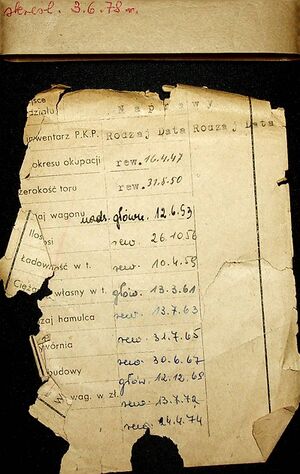 skreśl. 3.6.78 r.
Naprawy
Inwentarz P.K.P. Rodzaj Data Rodzaj Data
okresu okupacji rew. 16.4.47
zerokość toru rew. 31.8.50
aj wagonu nads. główn. 12.6.53
Iloś osi rew. 26.10 56
Ładowność w t. rew. 10.4.59
Cięża własny w t. głów. 13.3.61
zaj hamulca rew. 13.7.63
wórnia rew. 31.7.65
rew. 30.6.67
udowy głów. 12.12.69
wag. w zł. rew. 13.7.72
rew. 24.4.74